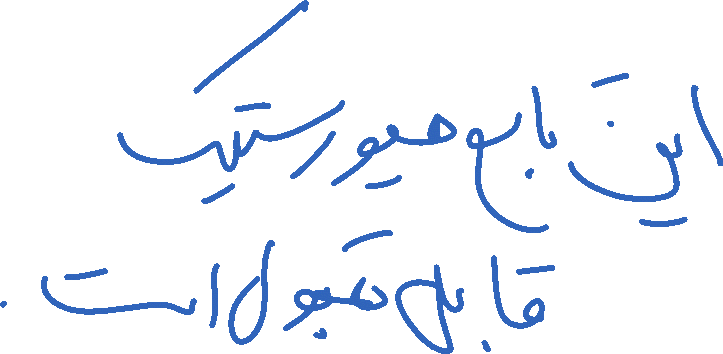 این تابع هیورستیک
قابل قبول است.